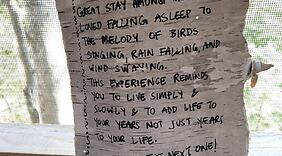 GREAT STAY AMONG
LOVED FALLING ASLEEP TO
THE MELODY OF BIRDS
SINGING, RAIN FALLING, AND
WIND SWAYING.
THIS EXPERIENCE REMINDS
YOU TO LIVE SIMPLY &
SLOWLY & TO ADD LIFE TO
YOUR YEARS NOT JUST YEARS
TO YOUR LIFE.
NEXT ONE!